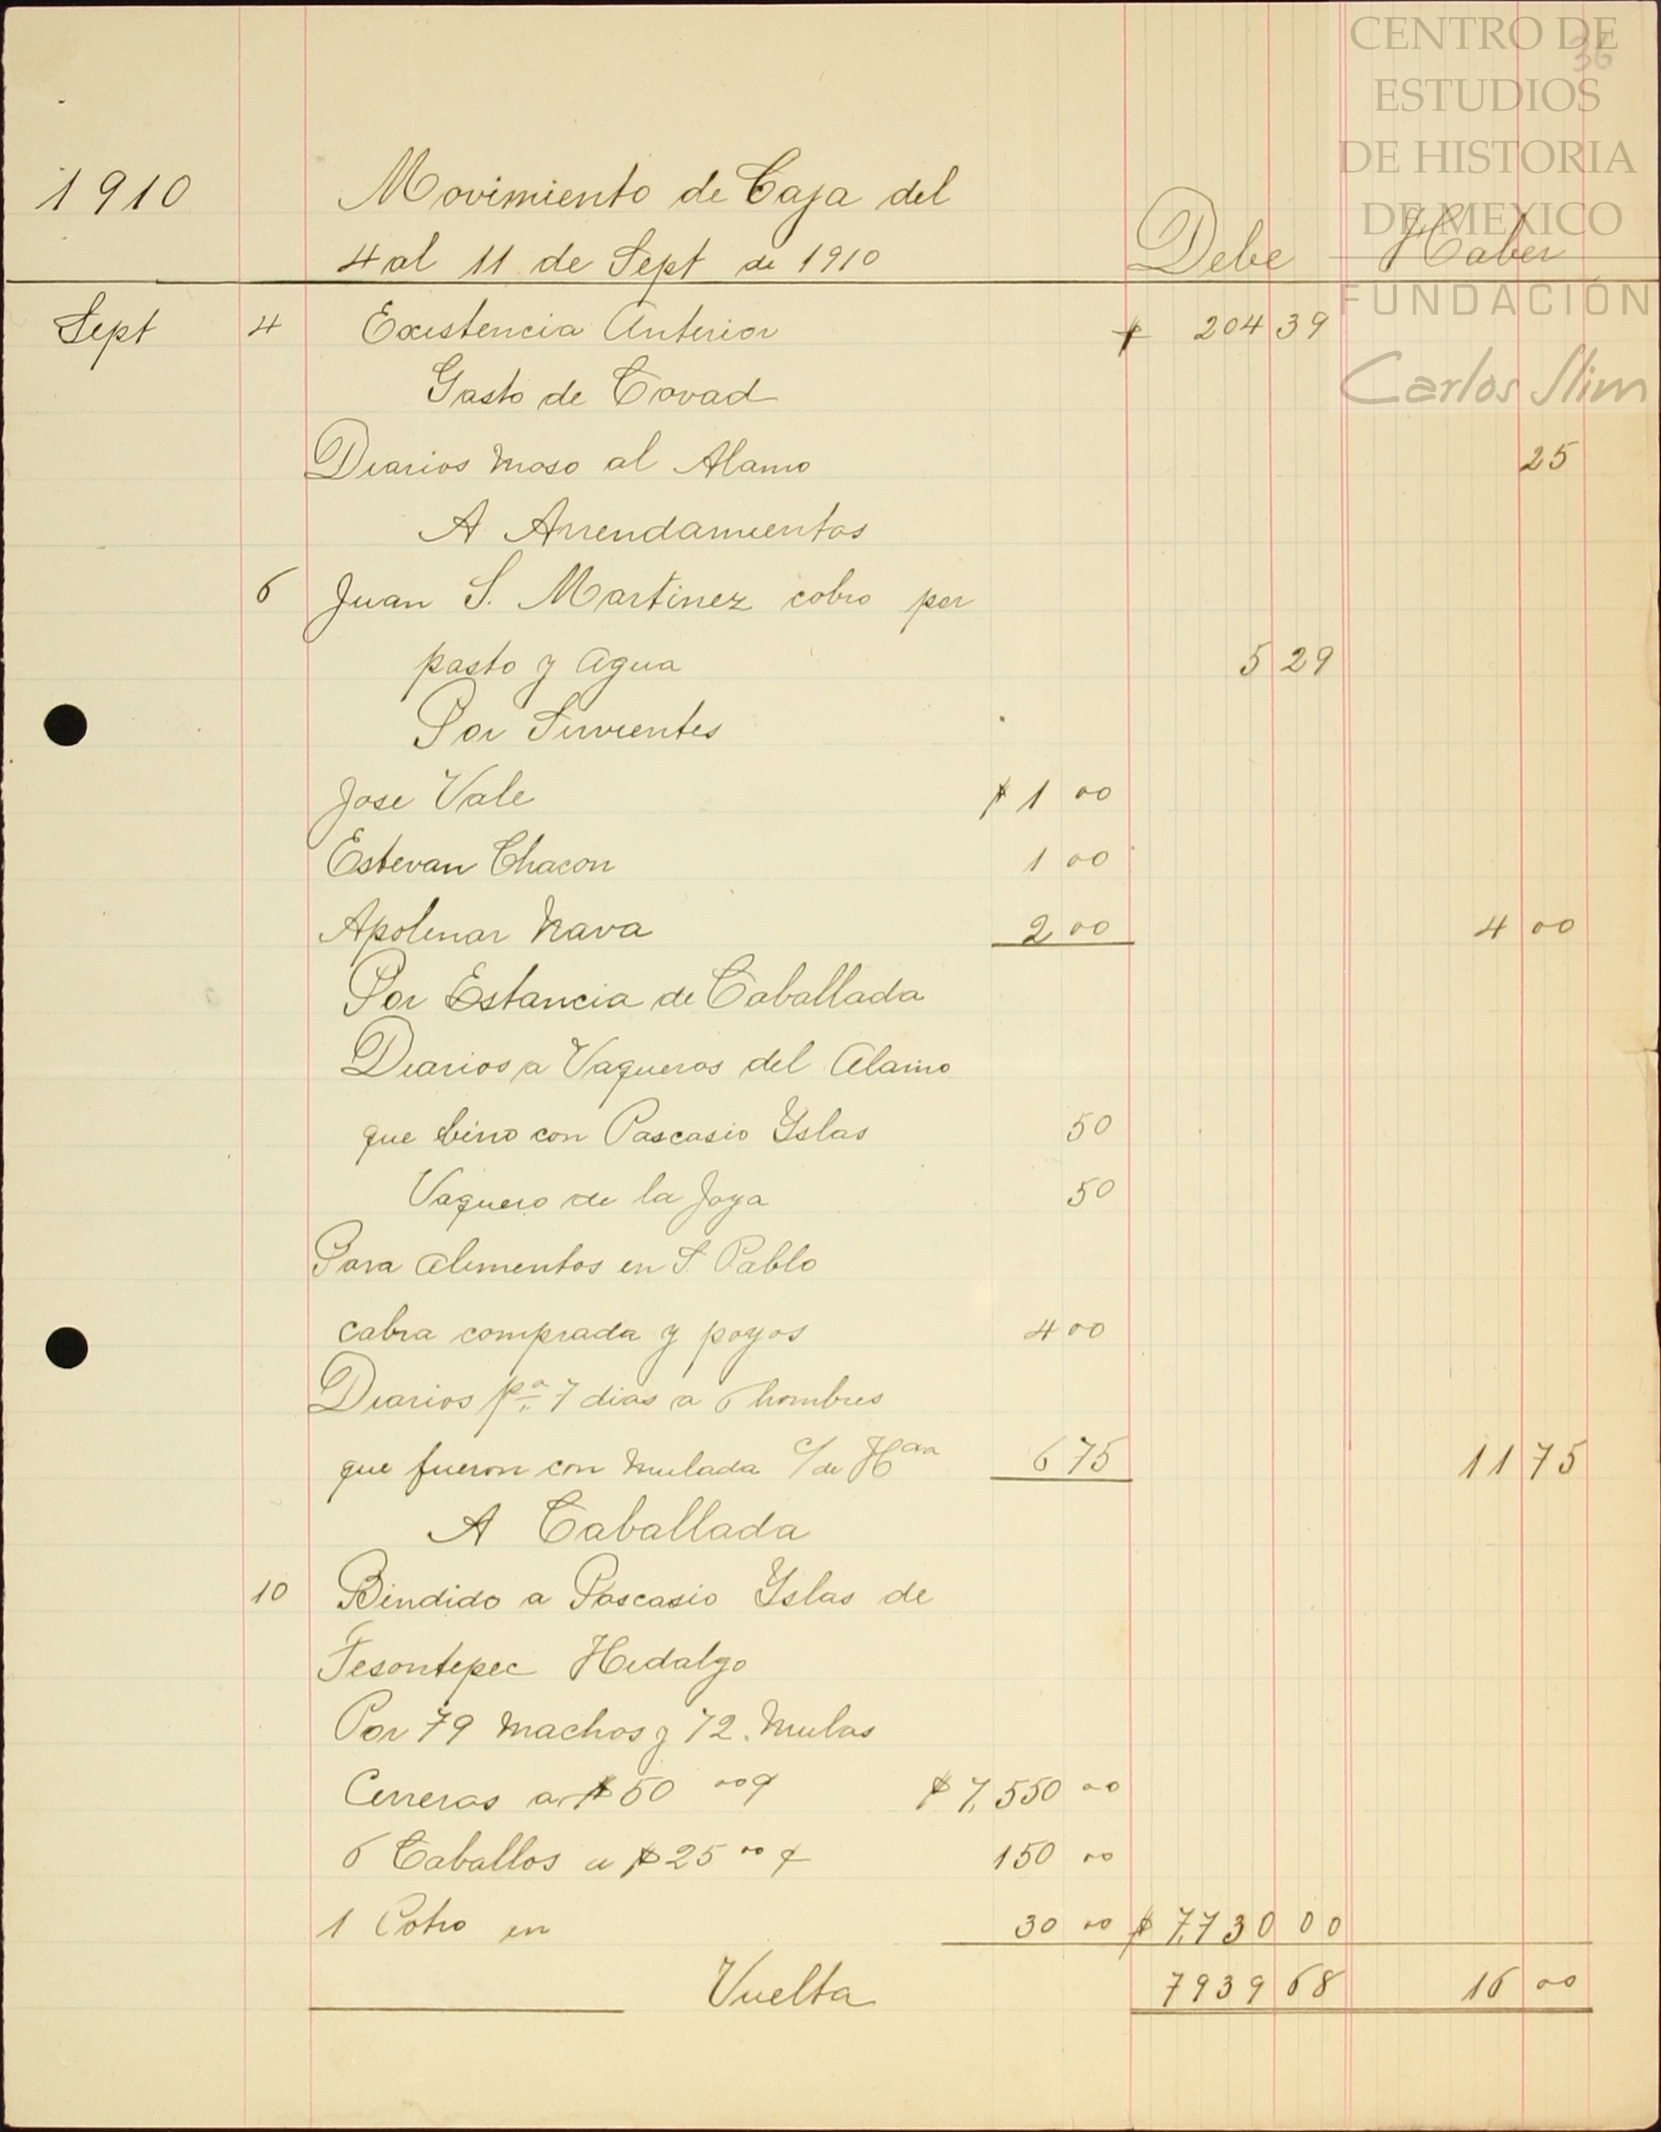 CENTRO DE
ESTUDIOS
DE HISTORIA
DE MEXICO
FUNDACIÓN
Carlos Slim
36
1910 Movimiento de Caja del
4 al 11 de Sept de 1910 Debe Haber
Sept 4 Existencia Anterior $ 204 39
Gasto de
Diarios moso al Alamo 25
A Arrendamientos
6 Juan S. Martinez cobro por
pasto y Agua 5 29
Por Sirvientes
Jose Vale $ 1 00
Estevan Chacon 1 00
Apolinar Nava 2 00 4 00
Por Estancia de Caballada
Diarios a Vaqueros del Alamo
que bino con Pascasio Yslas 50
Vaquero de la Joya 50
Para alimentos en S. Pablo
cabra comprada y poyos 4 00
Diarios pa. 7 dias a 6 hombres
que fueron con mulada c/ de Hda 6 75 11 75
A Caballada
10 Bindido a Pascasio Yslas de
Tesontepec Hidalgo
Por 79 machos y 72. Mulas
Cerreras a $ 50 00 $ 7,550 00
6 Caballos a $ 25 00 150 00
1 Potro en 30 00 $ 7,730 00
Vuelta 7939 68 16 00